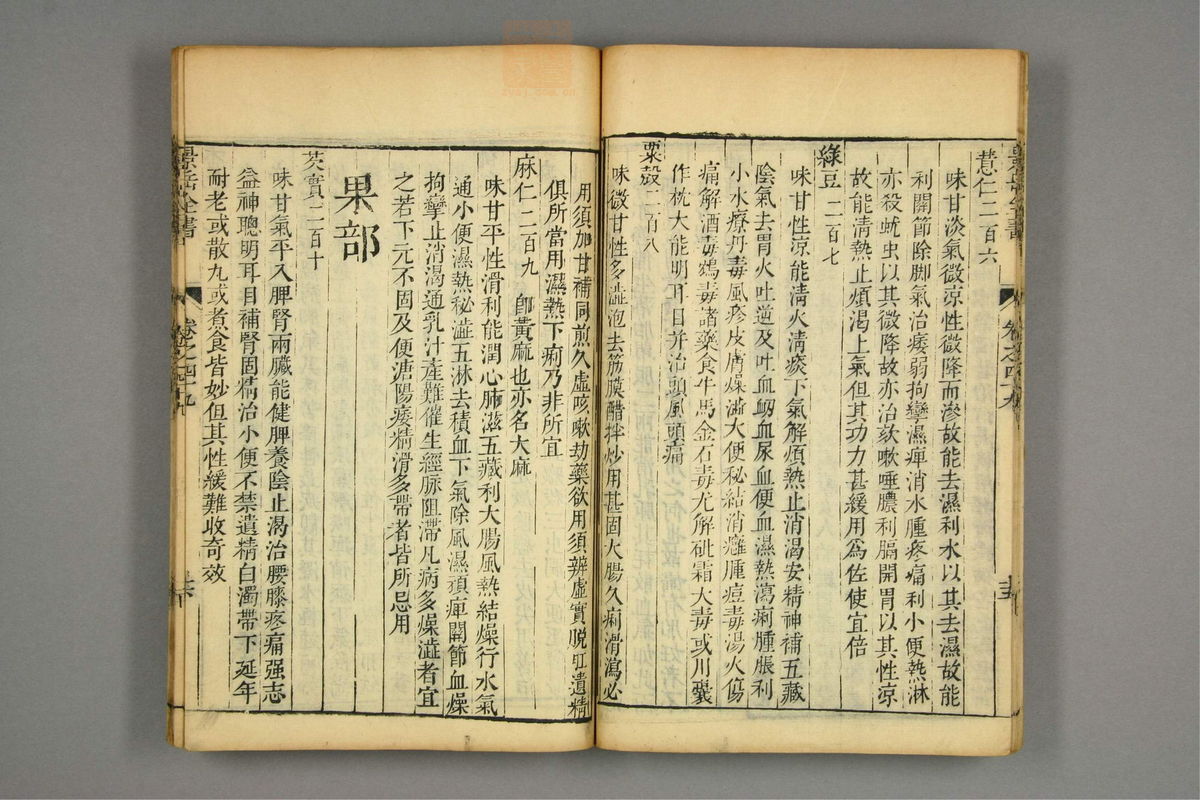 苡仁二百六
味甘淡氣微涼性微降而滲故能去濕利水以其去濕故能
利關節除脚氣治痿弱拘攣濕痺消水腫疼痛利小便熱淋
亦殺蚘虫以其微降故亦治欬嗽唾膿利膈開胃以其性涼
故能清熱止煩渴上氣但其功力甚緩用爲佐使宜倍
綠豆二百七
味甘性涼能清火清痰下氣解煩熱止消渴安精神補五藏
陰氣去胃火吐逆及吐血衂血尿血便血濕熱瀉痢腫脹利
小水療丹毒風疹皮膚燥澁大便秘結消癰腫痘毒湯火傷
痛解酒毒鴆毒諸藥食牛馬金石毒尤解砒霜大毒或用囊
作枕大能明耳目并治頭風頭痛
粟殼二百八
味微甘性多澁泡去筋膜醋拌炒用甚固大腸久痢滑瀉必
用須加甘補同煎久虛咳嗽劫藥欲用須辨虛實脫肛遺精
俱所當用濕熱下痢乃非所宜
麻仁二百九 卽黃麻也亦名大麻
味甘平性滑利能潤心肺滋五藏利大腸風熱結燥行水氣
通小便濕熱秘澁五淋去積血下氣除風濕頑痺關節血燥
拘攣止消渴通乳汁產難催生經脉阻滯凡病多燥澁者宜
之若下元不固及便溏陽痿精滑多帶者皆所忌用
果部
芡實二百十
味甘氣平入脾腎兩臟能健脾養陰止渴治腰膝疼痛强志
益神聰明耳目補腎固精治小便不禁遺精白濁帶下延年
耐老或散丸或煮食皆妙但其性緩難收奇效
景岳全書
卷之四十九